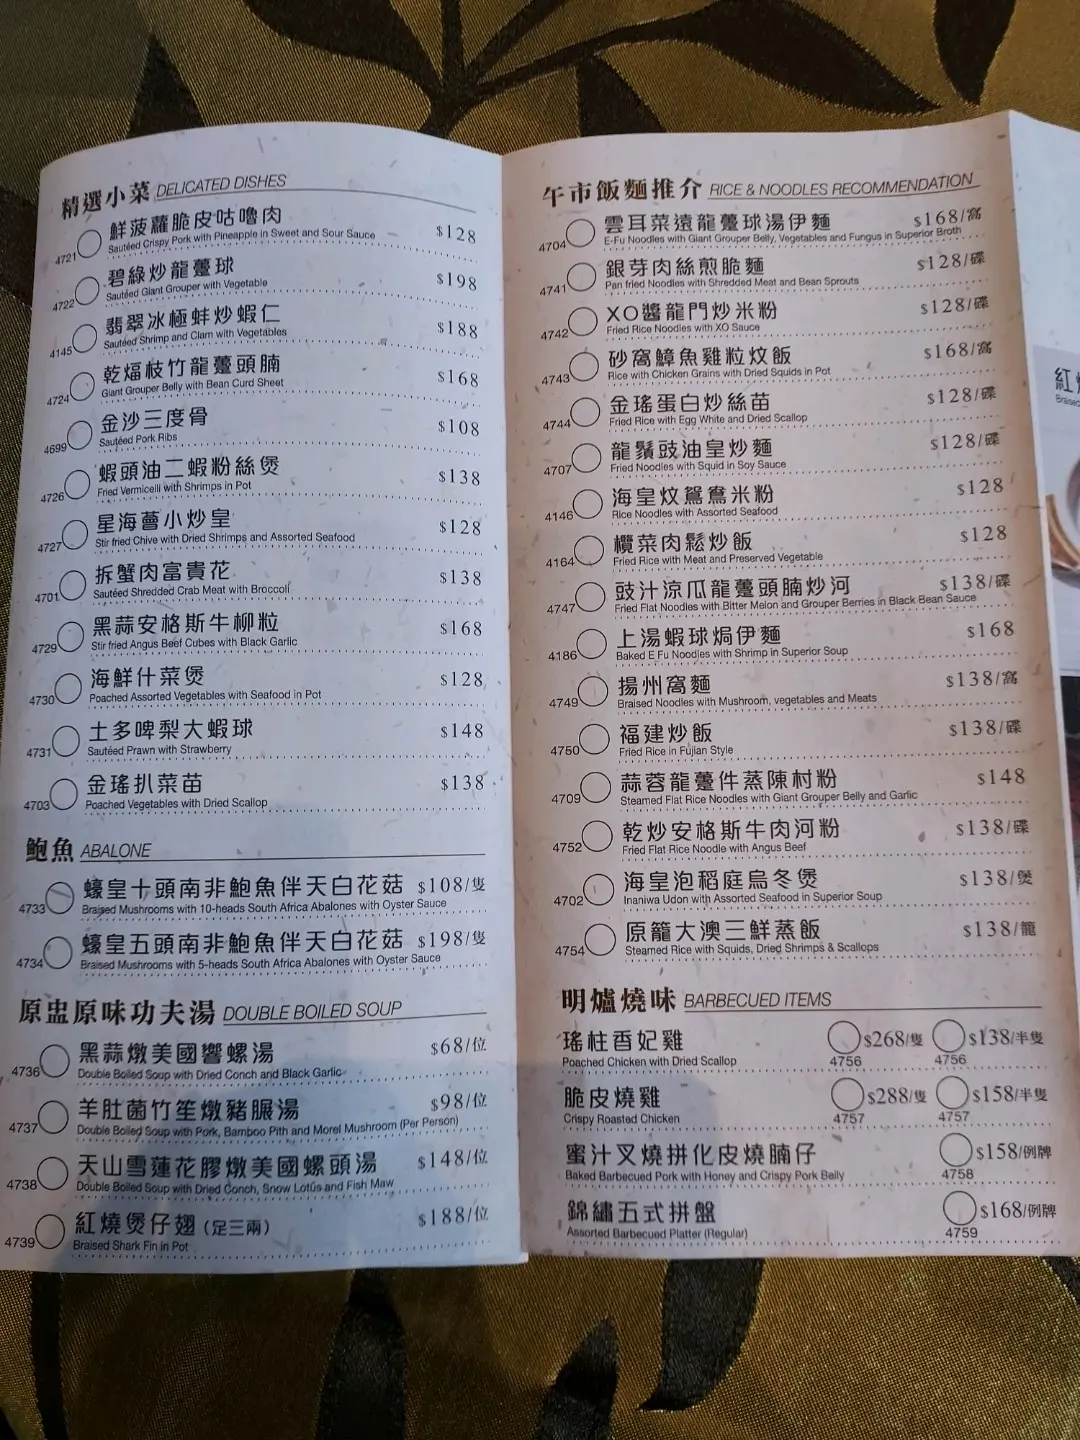 精選小菜 DELICATED DISHES
4721 鮮菠蘿脆皮咕嚕肉 $128
Sautéed Crispy Pork with Pineapple in Sweet and Sour Sauce
4722 碧綠炒龍躉球 $198
Sautéed Giant Grouper with Vegetable
4145 翡翠冰極蚌炒蝦仁 $188
Sautéed Shrimp and Clam with Vegetables
4724 乾煏枝竹龍躉頭腩 $168
Giant Grouper Belly with Bean Curd Sheet
4699 金沙三度骨 $108
Sautéed Pork Ribs
4726 蝦頭油二蝦粉絲煲 $138
Fried Vermicelli with Shrimps in Pot
4727 星海薈小炒皇 $128
Stir fried Chive with Dried Shrimps and Assorted Seafood
4701 拆蟹肉富貴花 $138
Sautéed Shredded Crab Meat with Broccoli
4729 黑蒜安格斯牛柳粒 $168
Stir fried Angus Beef Cubes with Black Garlic
4730 海鮮什菜煲 $128
Poached Assorted Vegetables with Seafood in Pot
4731 士多啤梨大蝦球 $148
Sautéed Prawn with Strawberry
4703 金瑤扒菜苗 $138
Poached Vegetables with Dried Scallop
鮑魚 ABALONE
4733 蠔皇十頭南非鮑魚伴天白花菇 $108/隻
Braised Mushrooms with 10-heads South Africa Abalones with Oyster Sauce
4734 蠔皇五頭南非鮑魚伴天白花菇 $198/隻
Braised Mushrooms with 5-heads South Africa Abalones with Oyster Sauce
原盅原味功夫湯 DOUBLE BOILED SOUP
4736 黑蒜燉美國響螺湯 $68/位
Double Boiled Soup with Dried Conch and Black Garlic
4737 羊肚菌竹笙燉豬𦟌湯 $98/位
Double Boiled Soup with Pork, Bamboo Pith and Morel Mushroom (Per Person)
4738 天山雪蓮花膠燉美國螺頭湯 $148/位
Double Boiled Soup with Dried Conch, Snow Lotus and Fish Maw
4739 紅燒煲仔翅 (足三兩) $188/位
Braised Shark Fin in Pot
午市飯麵推介 RICE & NOODLES RECOMMENDATION
4704 雲耳菜遠龍躉球湯伊麵 $168/窩
E-Fu Noodles with Giant Grouper Belly, Vegetables and Fungus in Superior Broth
4741 銀芽肉絲煎脆麵 $128/碟
Pan fried Noodles with Shredded Meat and Bean Sprouts
4742 XO醬龍門炒米粉 $128/碟
Fried Rice Noodles with XO Sauce
4743 砂窩鱆魚雞粒炆飯 $168/窩
Rice with Chicken Grains with Dried Squids in Pot
4744 金瑤蛋白炒絲苗 $128/碟
Fried Rice with Egg White and Dried Scallop
4707 龍鬚豉油皇炒麵 $128/碟
Fried Noodles with Squid in Soy Sauce
4146 海皇炆鴛鴦米粉 $128
Rice Noodles with Assorted Seafood
4164 欖菜肉鬆炒飯 $128
Fried Rice with Meat and Preserved Vegetable
4747 豉汁涼瓜龍躉頭腩炒河 $138/碟
Fried Flat Noodles with Bitter Melon and Grouper Berries in Black Bean Sauce
4186 上湯蝦球焗伊麵 $168
Baked E Fu Noodles with Shrimp in Superior Soup
4749 揚州窩麵 $138/窩
Braised Noodles with Mushroom, vegetables and Meats
4750 福建炒飯 $138/碟
Fried Rice in Fujian Style
4709 蒜蓉龍躉件蒸陳村粉 $148
Steamed Flat Rice Noodles with Giant Grouper Belly and Garlic
4752 乾炒安格斯牛肉河粉 $138/碟
Fried Flat Rice Noodle with Angus Beef
4702 海皇泡稻庭烏冬煲 $138/煲
Inaniwa Udon with Assorted Seafood in Superior Soup
4754 原籠大澳三鮮蒸飯 $138/籠
Steamed Rice with Squids, Dried Shrimps & Scallops
明爐燒味 BARBECUED ITEMS
瑤柱香妃雞 $268/隻 $138/半隻
Poached Chicken with Dried Scallop 4756 4756
脆皮燒雞 $288/隻 $158/半隻
Crispy Roasted Chicken 4757 4757
蜜汁叉燒拼化皮燒腩仔 $158/例牌
Baked Barbecued Pork with Honey and Crispy Pork Belly 4758
錦繡五式拼盤 $168/例牌
Assorted Barbecued Platter (Regular) 4759
紅